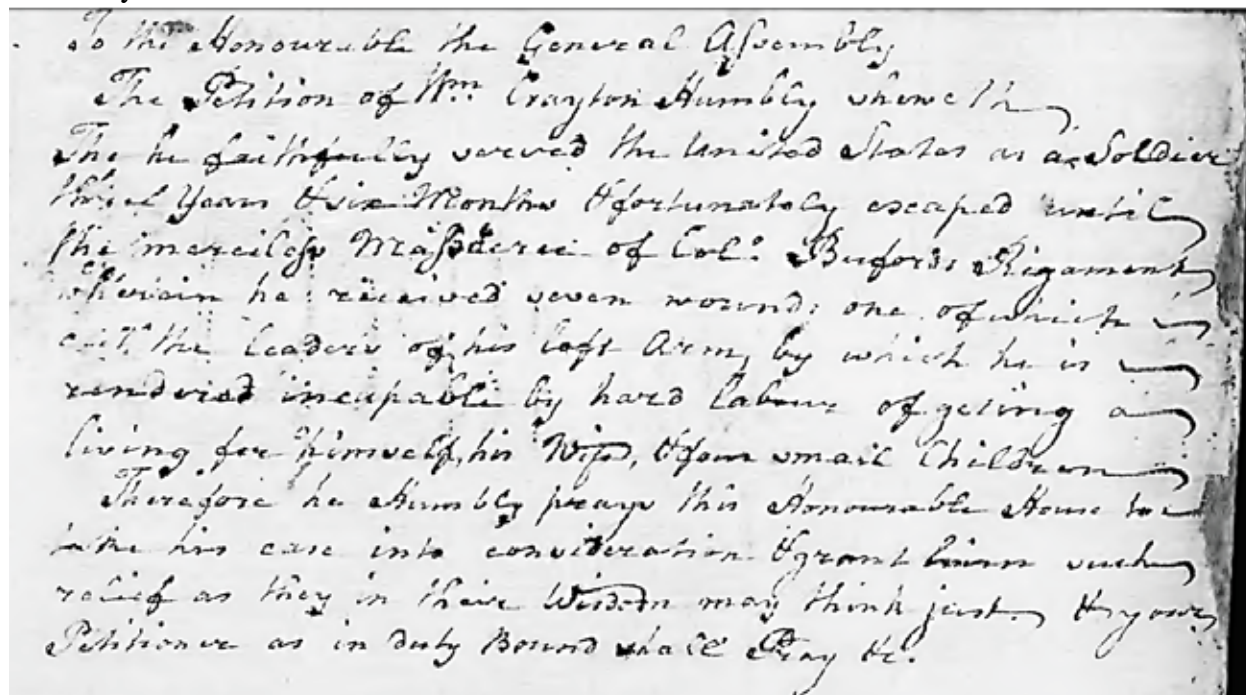 To the Honourable the General Assembly
The Petition of Wm. Crayton Humbly sheweth
The he faithfully served the United States as a Soldier
three Years & six Months & fortunately escaped until
the merciless Massacree of Col. Bufords Rigament
wherein he received seven wounds one of which
cut the leaders of his left Arm, by which he is
rendered incapable by hard Labour of geting a
living for himself, his Wife, & four small Children
Therefore he Humbly prays this Honourable House to
take his case into consideration & grant him such
relief as they in their Wisdom may think just. & your
Petitioner as in duty Bound shall Pray &c.